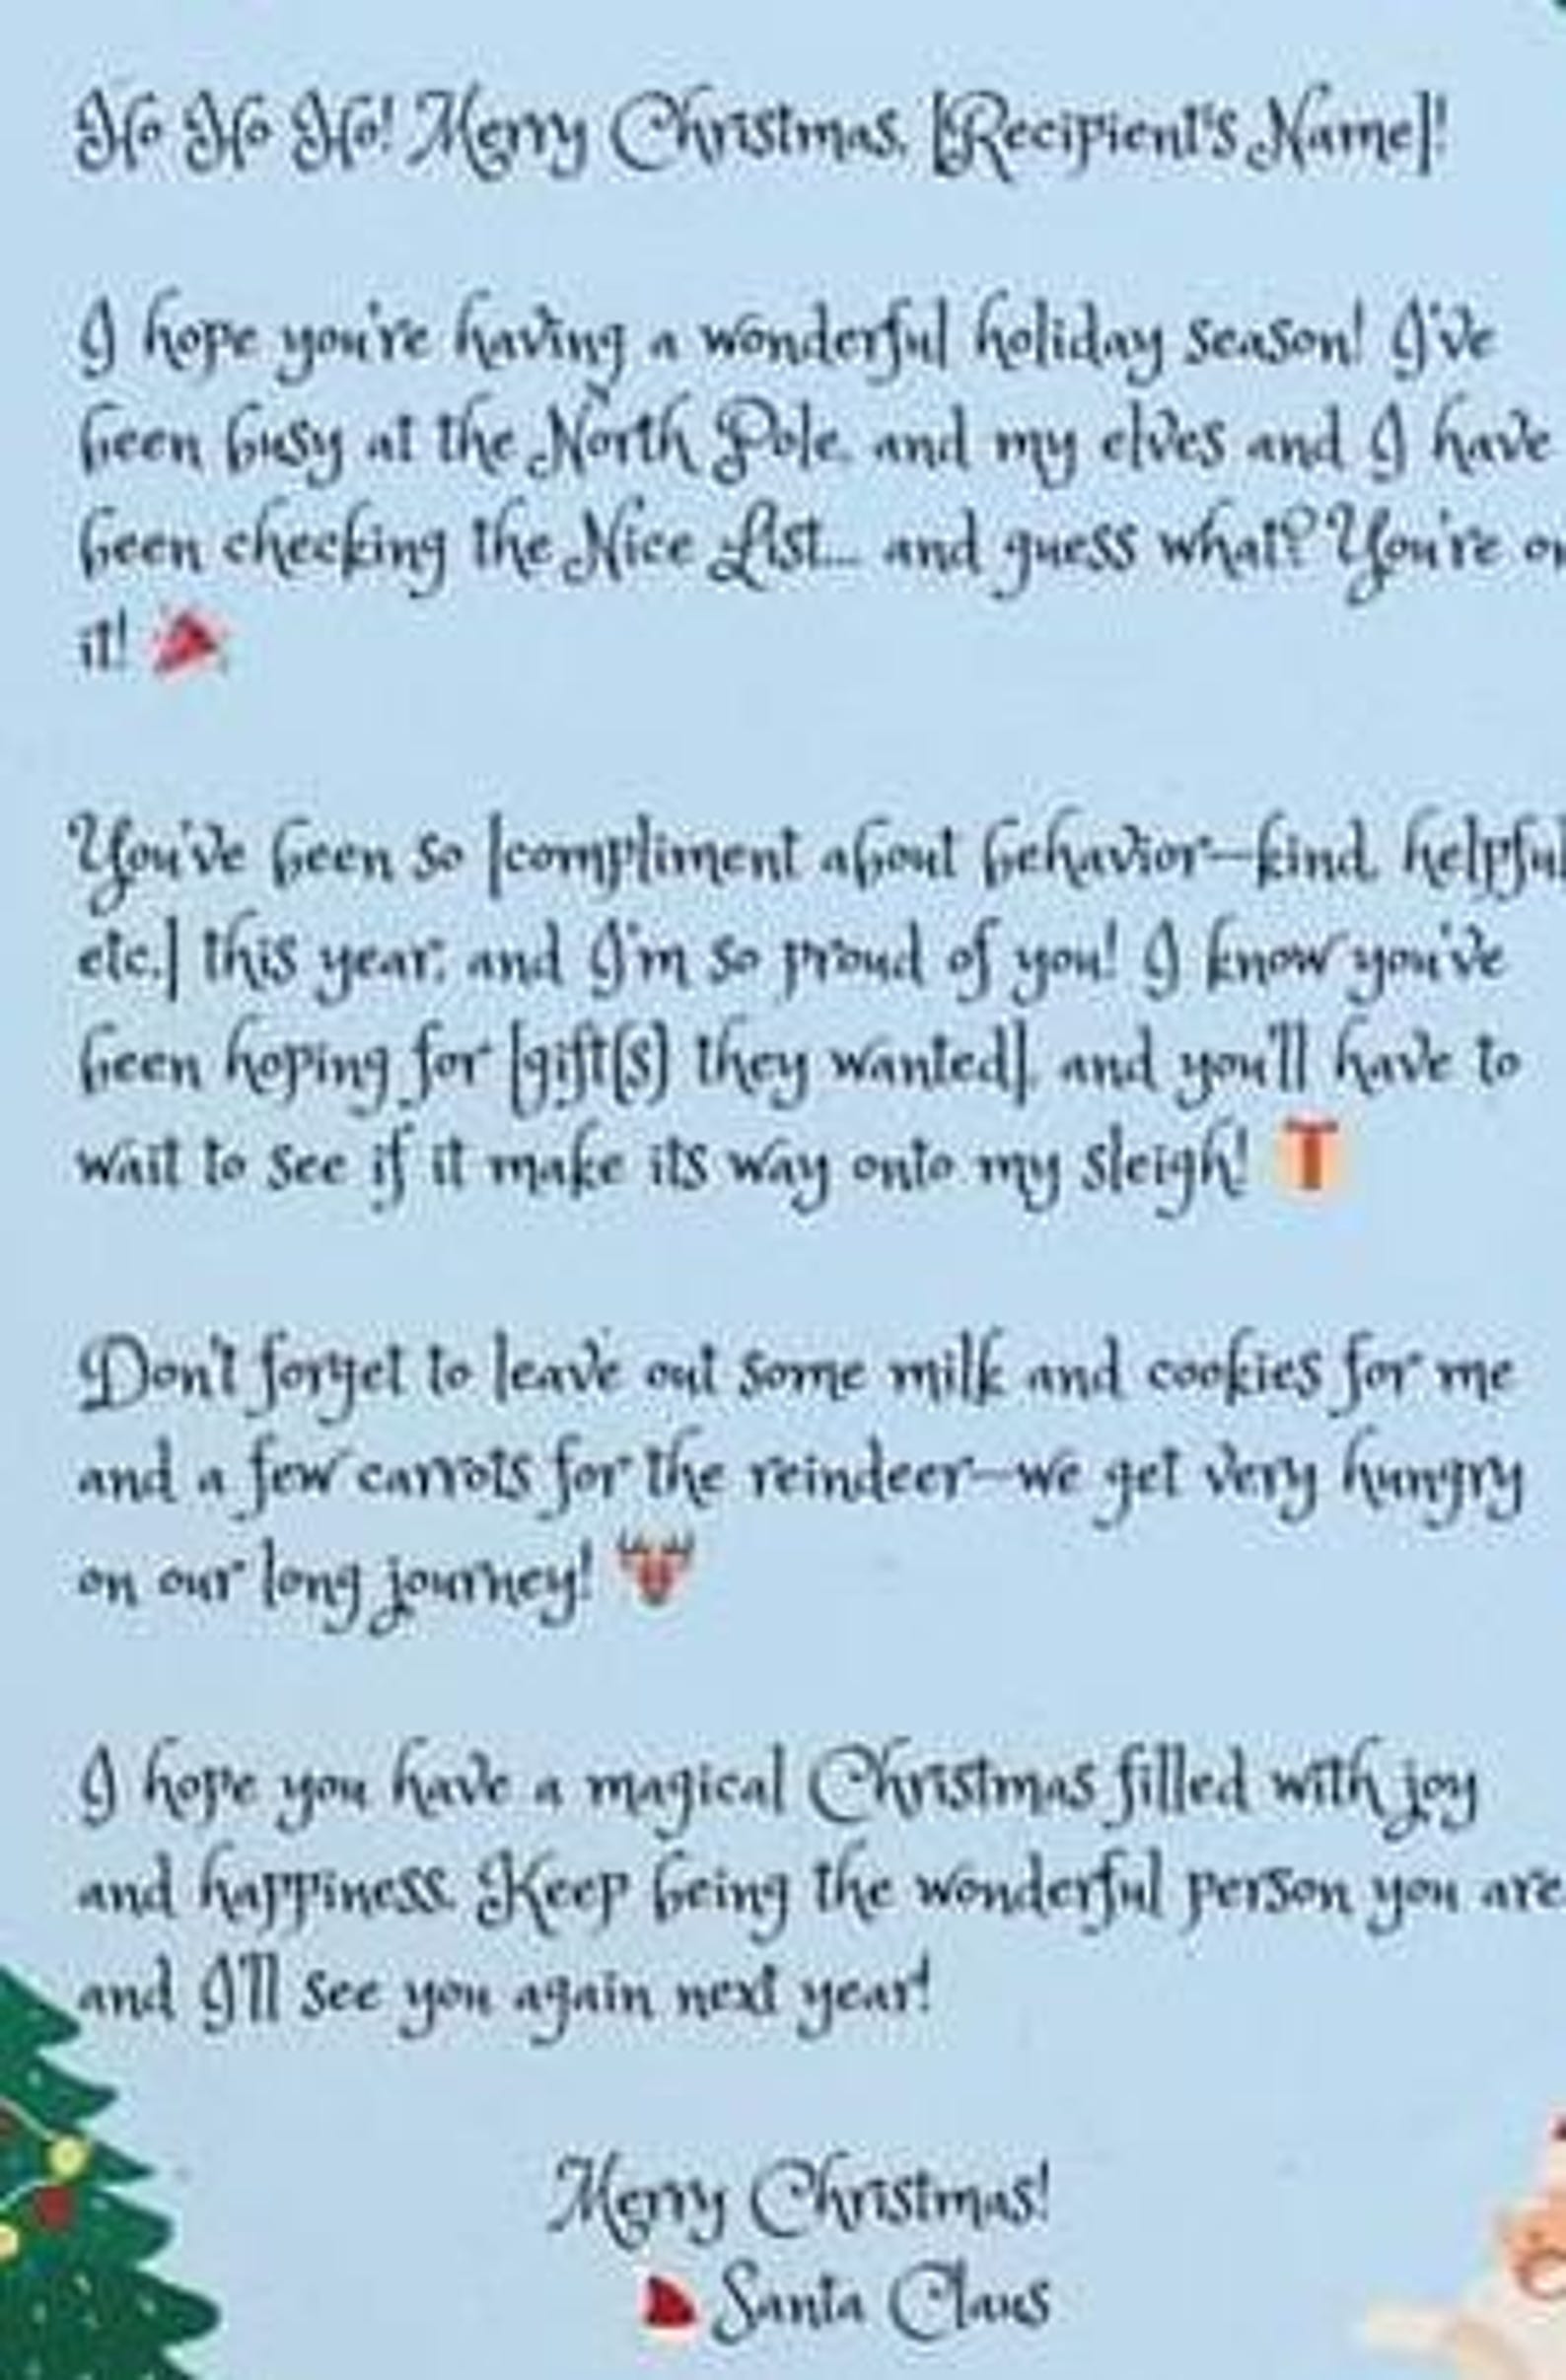 Ho Ho Ho! Merry Christmas, [Recipient's Name]!
I hope you're having a wonderful holiday season! I've
been busy at the North Pole, and my elves and I have
been checking the Nice List... and guess what? You're on
it!
You've been so [compliment about behavior—kind, helpful
etc.] this year, and I'm so proud of you! I know you've
been hoping for [gift(s) they wanted], and you'll have to
wait to see if it make its way onto my sleigh!
Don't forget to leave out some milk and cookies for me
and a few carrots for the reindeer—we get very hungry
on our long journey!
I hope you have a magical Christmas filled with joy
and happiness. Keep being the wonderful person you are
and I'll see you again next year!
Merry Christmas!
Santa Claus